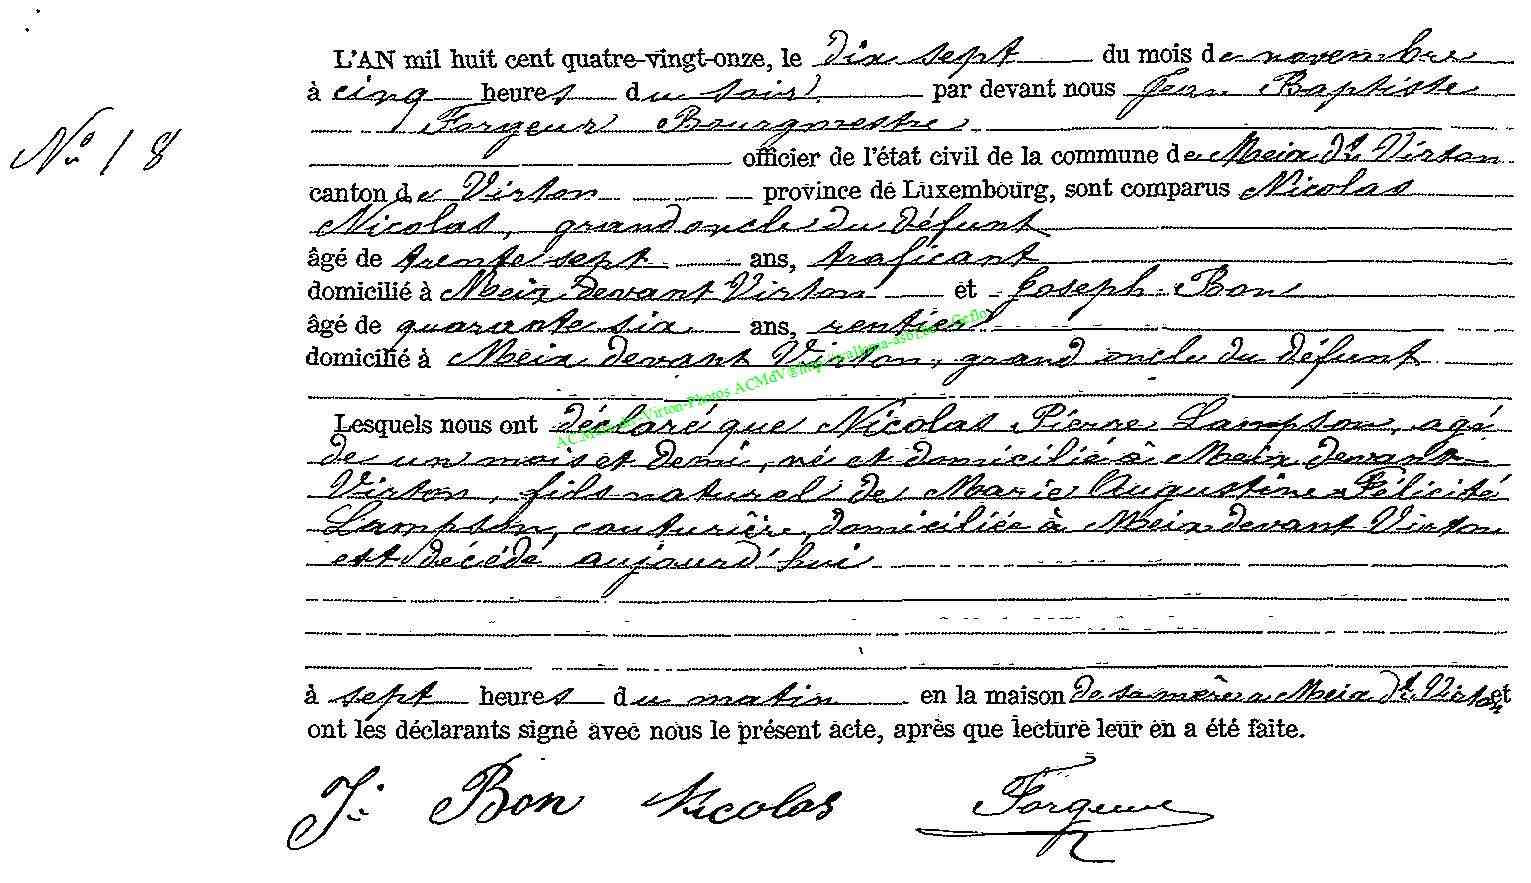 L'AN mil huit cent quatre-vingt-onze, le dix sept du mois de novembre
à cinq heures du soir par devant nous Jean Baptiste
Forgeur Bourgmestre
N° 18
officier de l'état civil de la commune de Meix dt Virton
canton de Virton province de Luxembourg, sont comparus Nicolas
Nicolas, grand oncle du défunt
âgé de trente sept ans, traficant
domicilié à Meix devant Virton et Joseph Bon
âgé de quarante six ans, rentier
domicilié à Meix devant Virton, grand oncle du défunt
Lesquels nous ont déclaré que Nicolas Pierre Lampson, agé
de un mois et demi, né et domicilié à Meix devant
Virton, fils naturel de Marie Augustine Félicité
Lampson, couturière, domiciliée à Meix devant Virton
est décédé aujourd'hui
à sept heures du matin en la maison de sa mère a Meix dt Virton et
ont les déclarants signé avec nous le présent acte, après que lecture leur en a été faite.
J. Bon Nicolas Forgeur